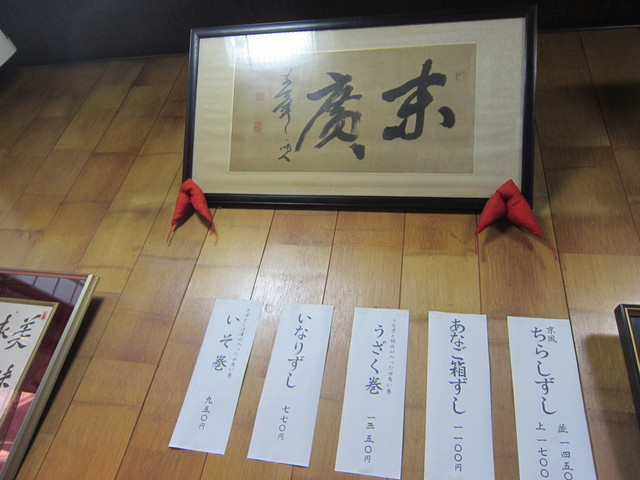 末廣
京風
ちらしずし
並 一四五〇
上 一七〇〇
あなご箱ずし
一一〇〇円
うざく巻
一三五〇円
いなりずし
七七〇円
いそ巻
九五〇円
美味